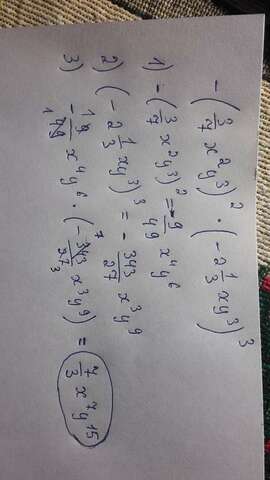 -(3/7 x²y³)² · (-2 1/3 xy³)³
1) -(3/7 x²y³)² = -9/49 x⁴y⁶
2) (-2 1/3 xy³)³ = - 343/27 x³y⁹
3) - 9/49 x⁴y⁶ · (- 343/27 x³y⁹) = 7/3 x⁷y¹⁵
1 1 7 3